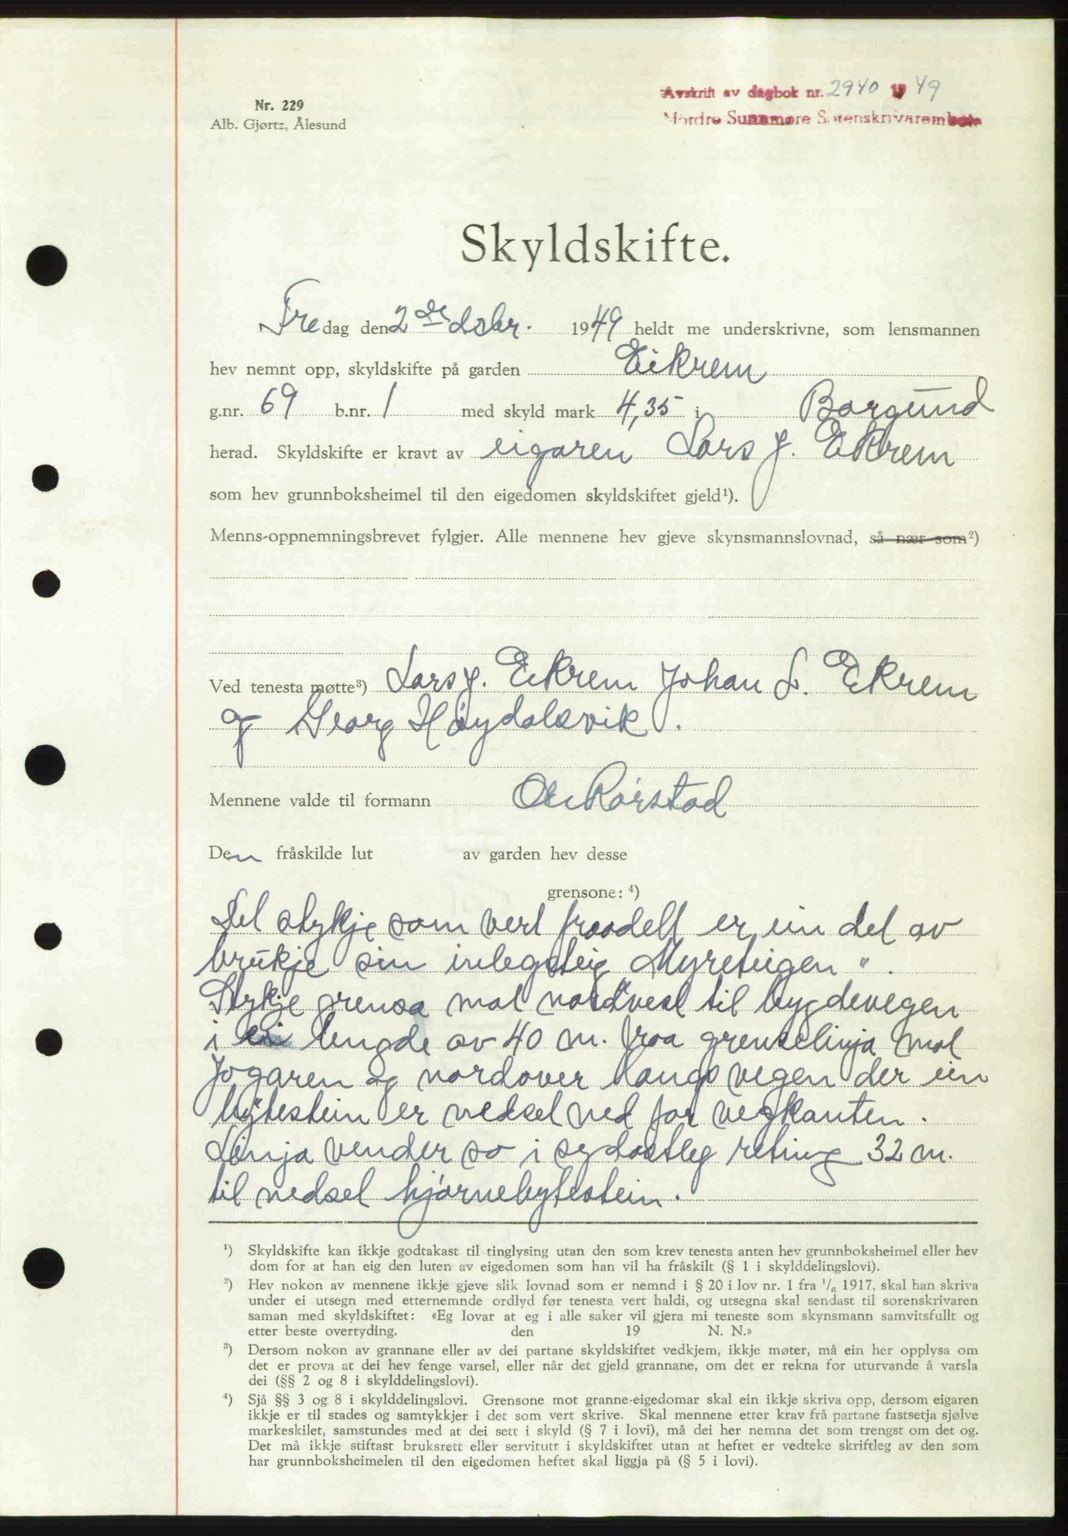 Nr. 229
Alb. Gjørtz, Ålesund
Avskrift av dagbok nr. 2940 19 49
Nordre Sunnmøre Sorenskrivarembete
Skyldskifte.
Fredag den 2 de desbr. 1949 heldt me underskrivne, som lensmannen
hev nemnt opp, skyldskifte på garden Eikrem
g.nr. 69 b.nr. 1 med skyld mark 4,35 i Borgund
herad. Skyldskifte er kravt av eigaren Lars J. Eikrem
som hev grunnboksheimel til den eigedomen skyldskiftet gjeld¹).
Menns-oppnemningsbrevet fylgjer. Alle mennene hev gjeve skynsmannslovnad, så nær som²)
Ved tenesta møtte³) Lars J. Eikrem Johan L. Eikrem
og Georg Høydalsvik.
Mennene valde til formann Ole Rørstad
Den fråskilde lut av garden hev desse
grensone: ⁴)
Det stykje som vert fraadelt er ein del av
brukje sin inlegsteig Myreteigen".
Stykje grensa mot nordvest til bygdevegen
i lengde av 40 m. fraa grenselinja mot
Jogaren og nordover langs vegen der ein
bytestein er nedset ned for vegkanten.
Linja vender so i sydøstleg retning 32 m.
til nedset hjørnebytestein.
¹) Skyldskifte kan ikkje godtakast til tinglysing utan den som krev tenesta anten hev grunnboksheimel eller hev
dom for at han eig den luten av eigedomen som han vil ha fråskilt (§ 1 i skylddelingslovi).
²) Hev nokon av mennene ikkje gjeve slik lovnad som er nemnd i § 20 i lov nr. 1 fra 1/6 1917, skal han skriva
under ei utsegn med etternemnde ordlyd før tenesta vert haldi, og utsegna skal sendast til sorenskrivaren
saman med skyldskiftet: «Eg lovar at eg i alle saker vil gjera mi teneste som skynsmann samvitsfullt og
etter beste overtyding. den 19 N. N.»
³) Dersom nokon av grannane eller av dei partane skyldskiftet vedkjem, ikkje møter, må ein her opplysa om
det er prova at dei hev fenge varsel, eller når det gjeld grannane, om det er rekna for uturvande å varsla
dei (§§ 2 og 8 i skylddelingslovi).
⁴) Sjå §§ 3 og 8 i skylddelingslovi. Grensone mot granne-eigedomar skal ein ikkje skriva opp, dersom eigaren
ikkje er til stades og samtykkjer i det som vert skrive. Skal mennene etter krav frå partane fastsetja sjølve
markeskilet, samstundes med at dei sett i skyld (§ 7 i lovi), må dei her nemna det som trengst om det og.
Det må ikkje stiftast bruksrett eller servitutt i skyldskiftet utan at heftet er vedteke skriftleg av den som
har grunnboksheimelen til den eigedomen heftet skal liggja på (§ 5 i lovi).